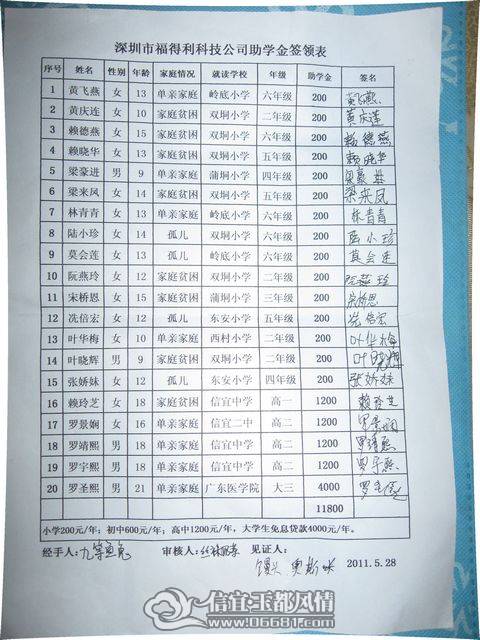 深圳市福得利科技公司助学金签领表
序号 姓名 性别 年龄 家庭情况 就读学校 年级 助学金 签名
1 黄飞燕 女 13 单亲家庭 岭底小学 六年级 200 黄飞燕
2 黄庆连 女 10 家庭贫困 双垌小学 二年级 200 黄庆连
3 赖德燕 女 15 家庭贫困 双垌小学 六年级 200 赖德燕
4 赖晓华 女 13 家庭贫困 双垌小学 五年级 200 赖晓华
5 梁豪进 男 9 单亲家庭 蒲垌小学 四年级 200 梁豪进
6 梁来凤 女 14 家庭贫困 双垌小学 五年级 200 梁来凤
7 林青青 女 13 单亲家庭 岭底小学 六年级 200 林青青
8 陆小珍 女 14 孤儿 双垌小学 五年级 200 陆小珍
9 莫会莲 女 13 孤儿 岭底小学 六年级 200 莫会莲
10 阮燕玲 女 12 家庭贫困 双垌小学 二年级 200 阮燕玲
11 宋桥恩 女 15 家庭贫困 蒲垌小学 三年级 200 宋桥恩
12 冼倍宏 女 12 孤儿 东安小学 五年级 200 冼倍宏
13 叶华梅 女 10 单亲家庭 西村小学 二年级 200 叶华梅
14 叶晓辉 男 9 家庭贫困 双垌小学 二年级 200 叶晓辉
15 张娇妹 女 12 孤儿 东安小学 四年级 200 张娇妹
16 赖玲芝 女 18 家庭贫困 信宜中学 高一 1200 赖玲芝
17 罗景娴 女 16 单亲家庭 信宜二中 高二 1200 罗景娴
18 罗靖熙 男 18 单亲家庭 信宜中学 高二 1200 罗靖熙
19 罗宇熙 男 18 单亲家庭 信宜中学 高二 1200 罗宇熙
20 罗圣熙 男 21 单亲家庭 广东医学院 大三 4000 罗圣熙
11800
小学200元/年；初中600元/年；高中1200元/年，大学生免息贷款4000元/年。
经手人： 审核人： 见证人：
2011.5.28
信宜玉都风情
www.06681.com